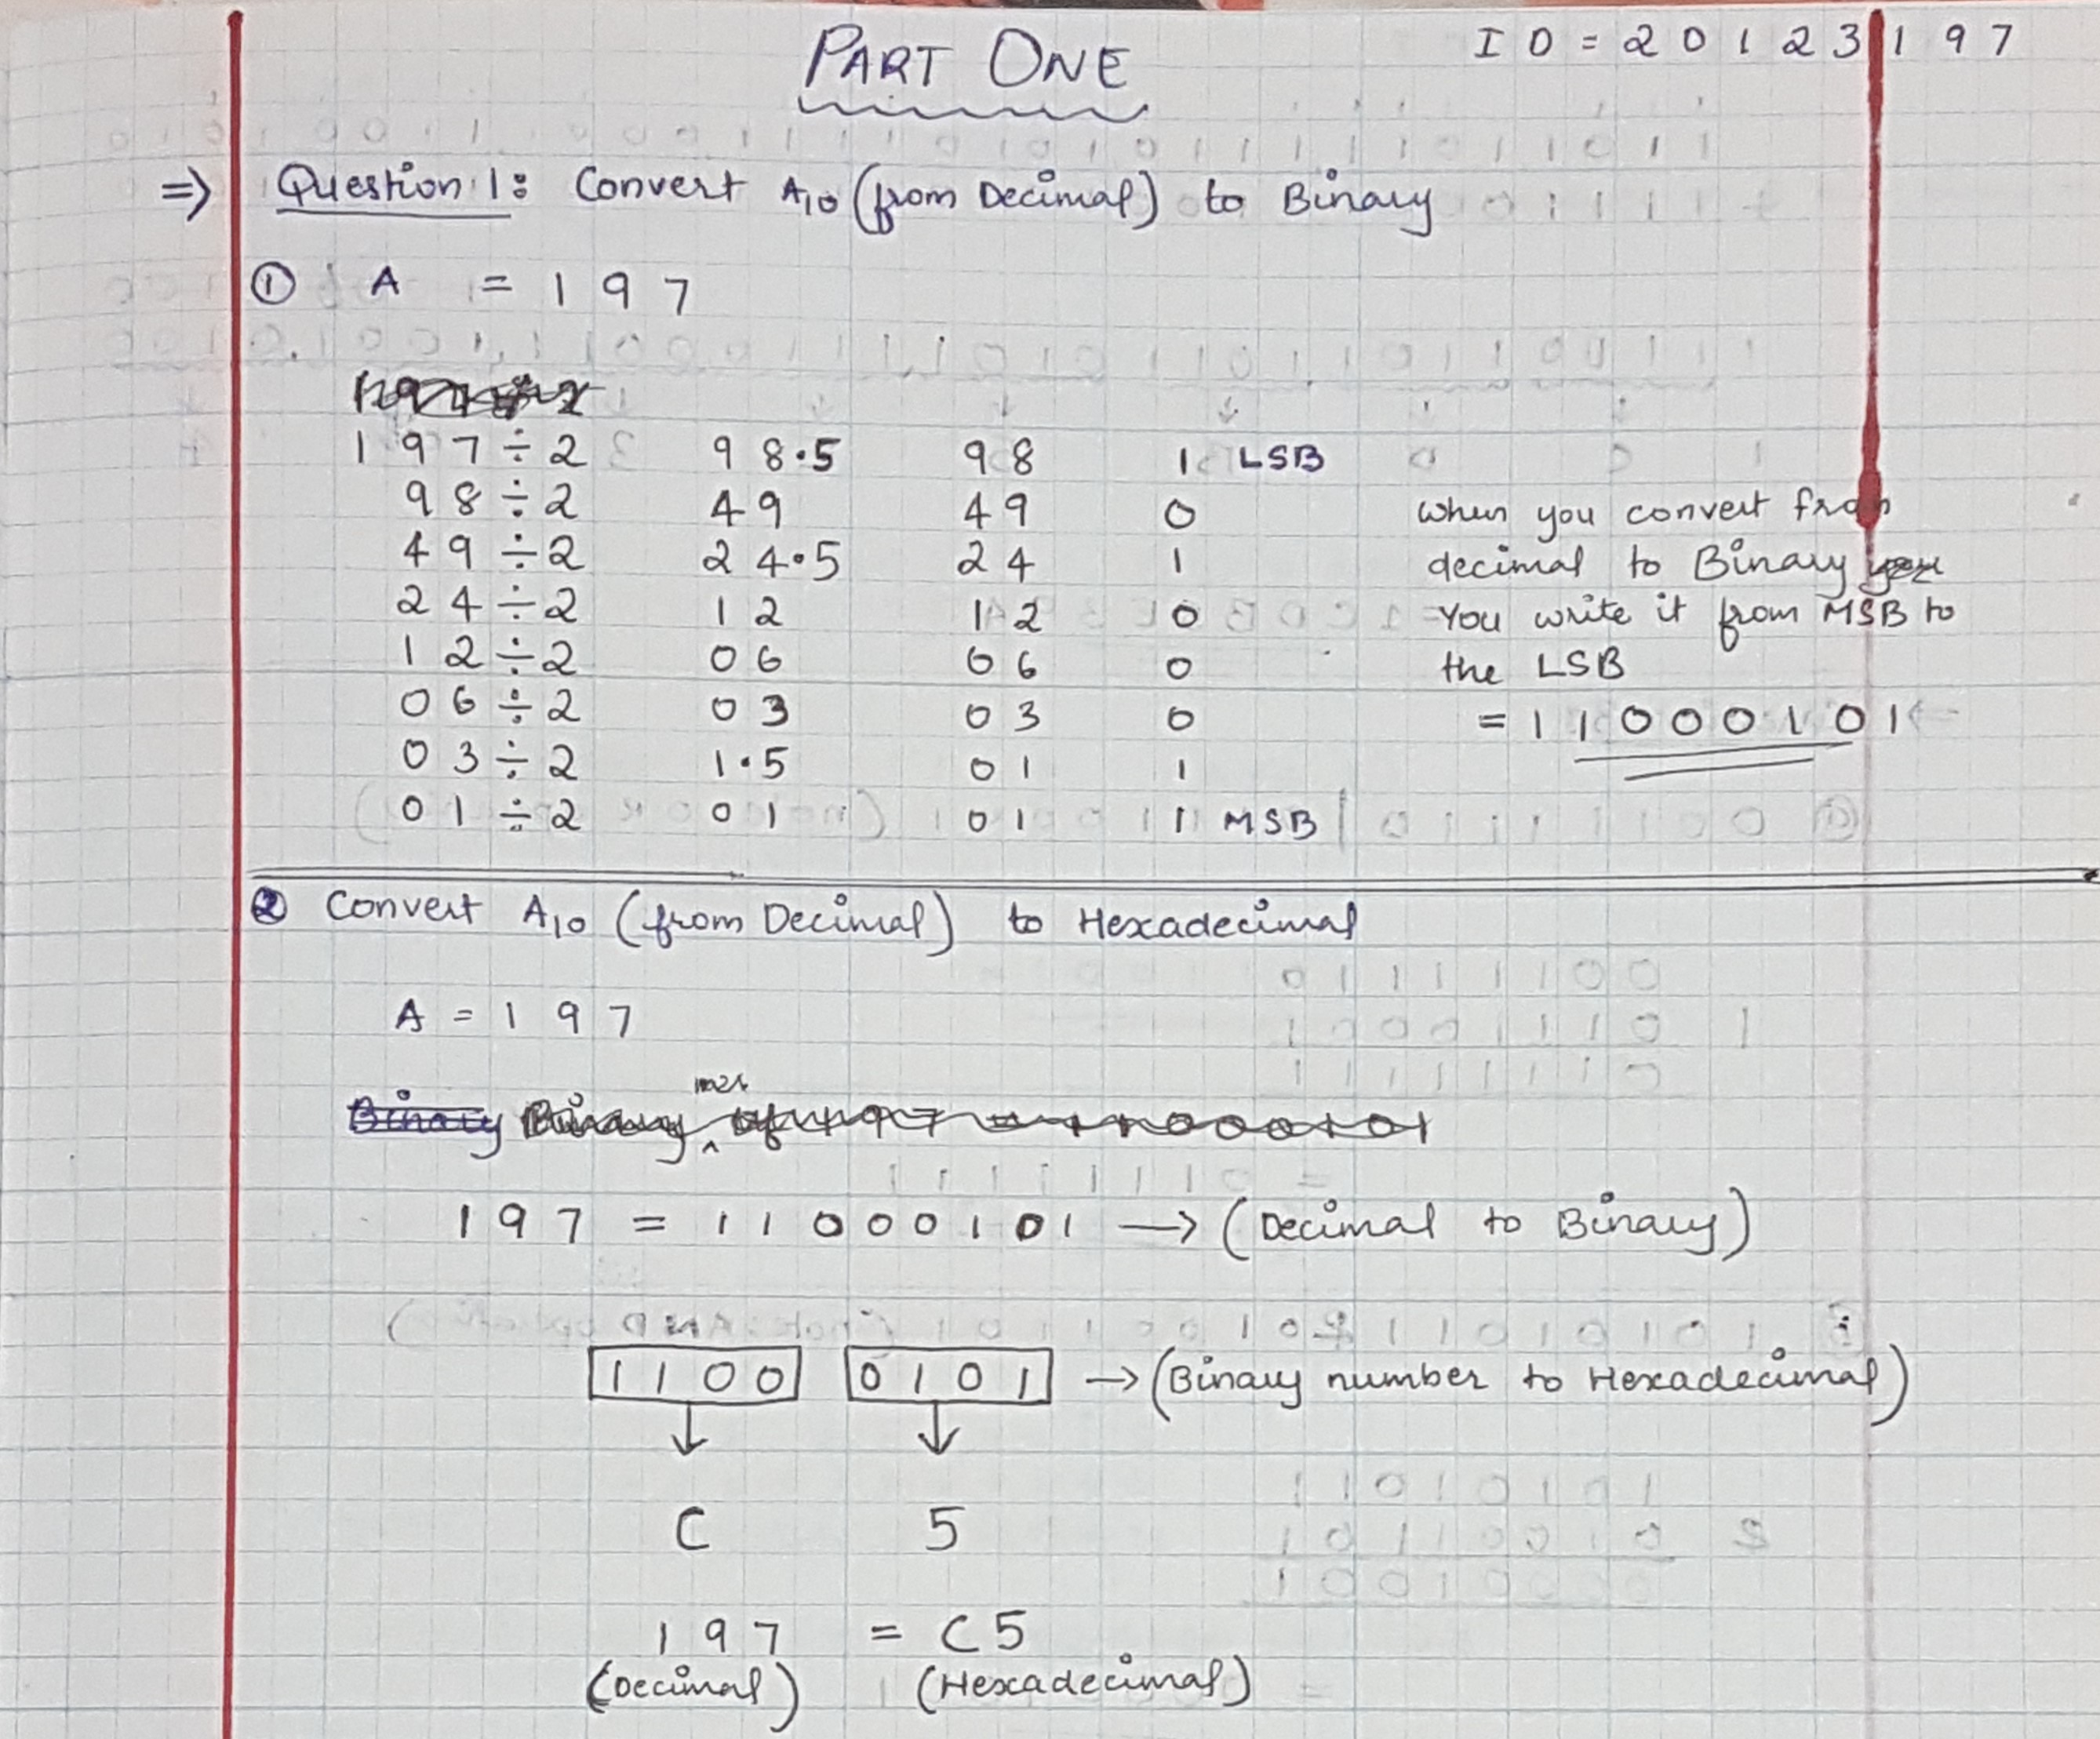 PART ONE
ID = 20123197
=> Question 1: Convert A10 (from Decimal) to Binary
① A = 197
197 ÷ 2 98.5 98 1 LSB
98 ÷ 2 49 49 0
49 ÷ 2 24.5 24 1
24 ÷ 2 12 12 0
12 ÷ 2 06 06 0
06 ÷ 2 03 03 0
03 ÷ 2 1.5 01 1
01 ÷ 2 01 01 1 MSB
when you convert from
decimal to Binary you
You write it from MSB to
the LSB
= 11000101
② Convert A10 (from Decimal) to Hexadecimal
A = 197
Binary Binary of 197 = 11000101
197 = 11000101 → (Decimal to Binary)
1100 0101 → (Binary number to Hexadecimal)
↓ ↓
C 5
197 = C5
(Decimal) (Hexadecimal)